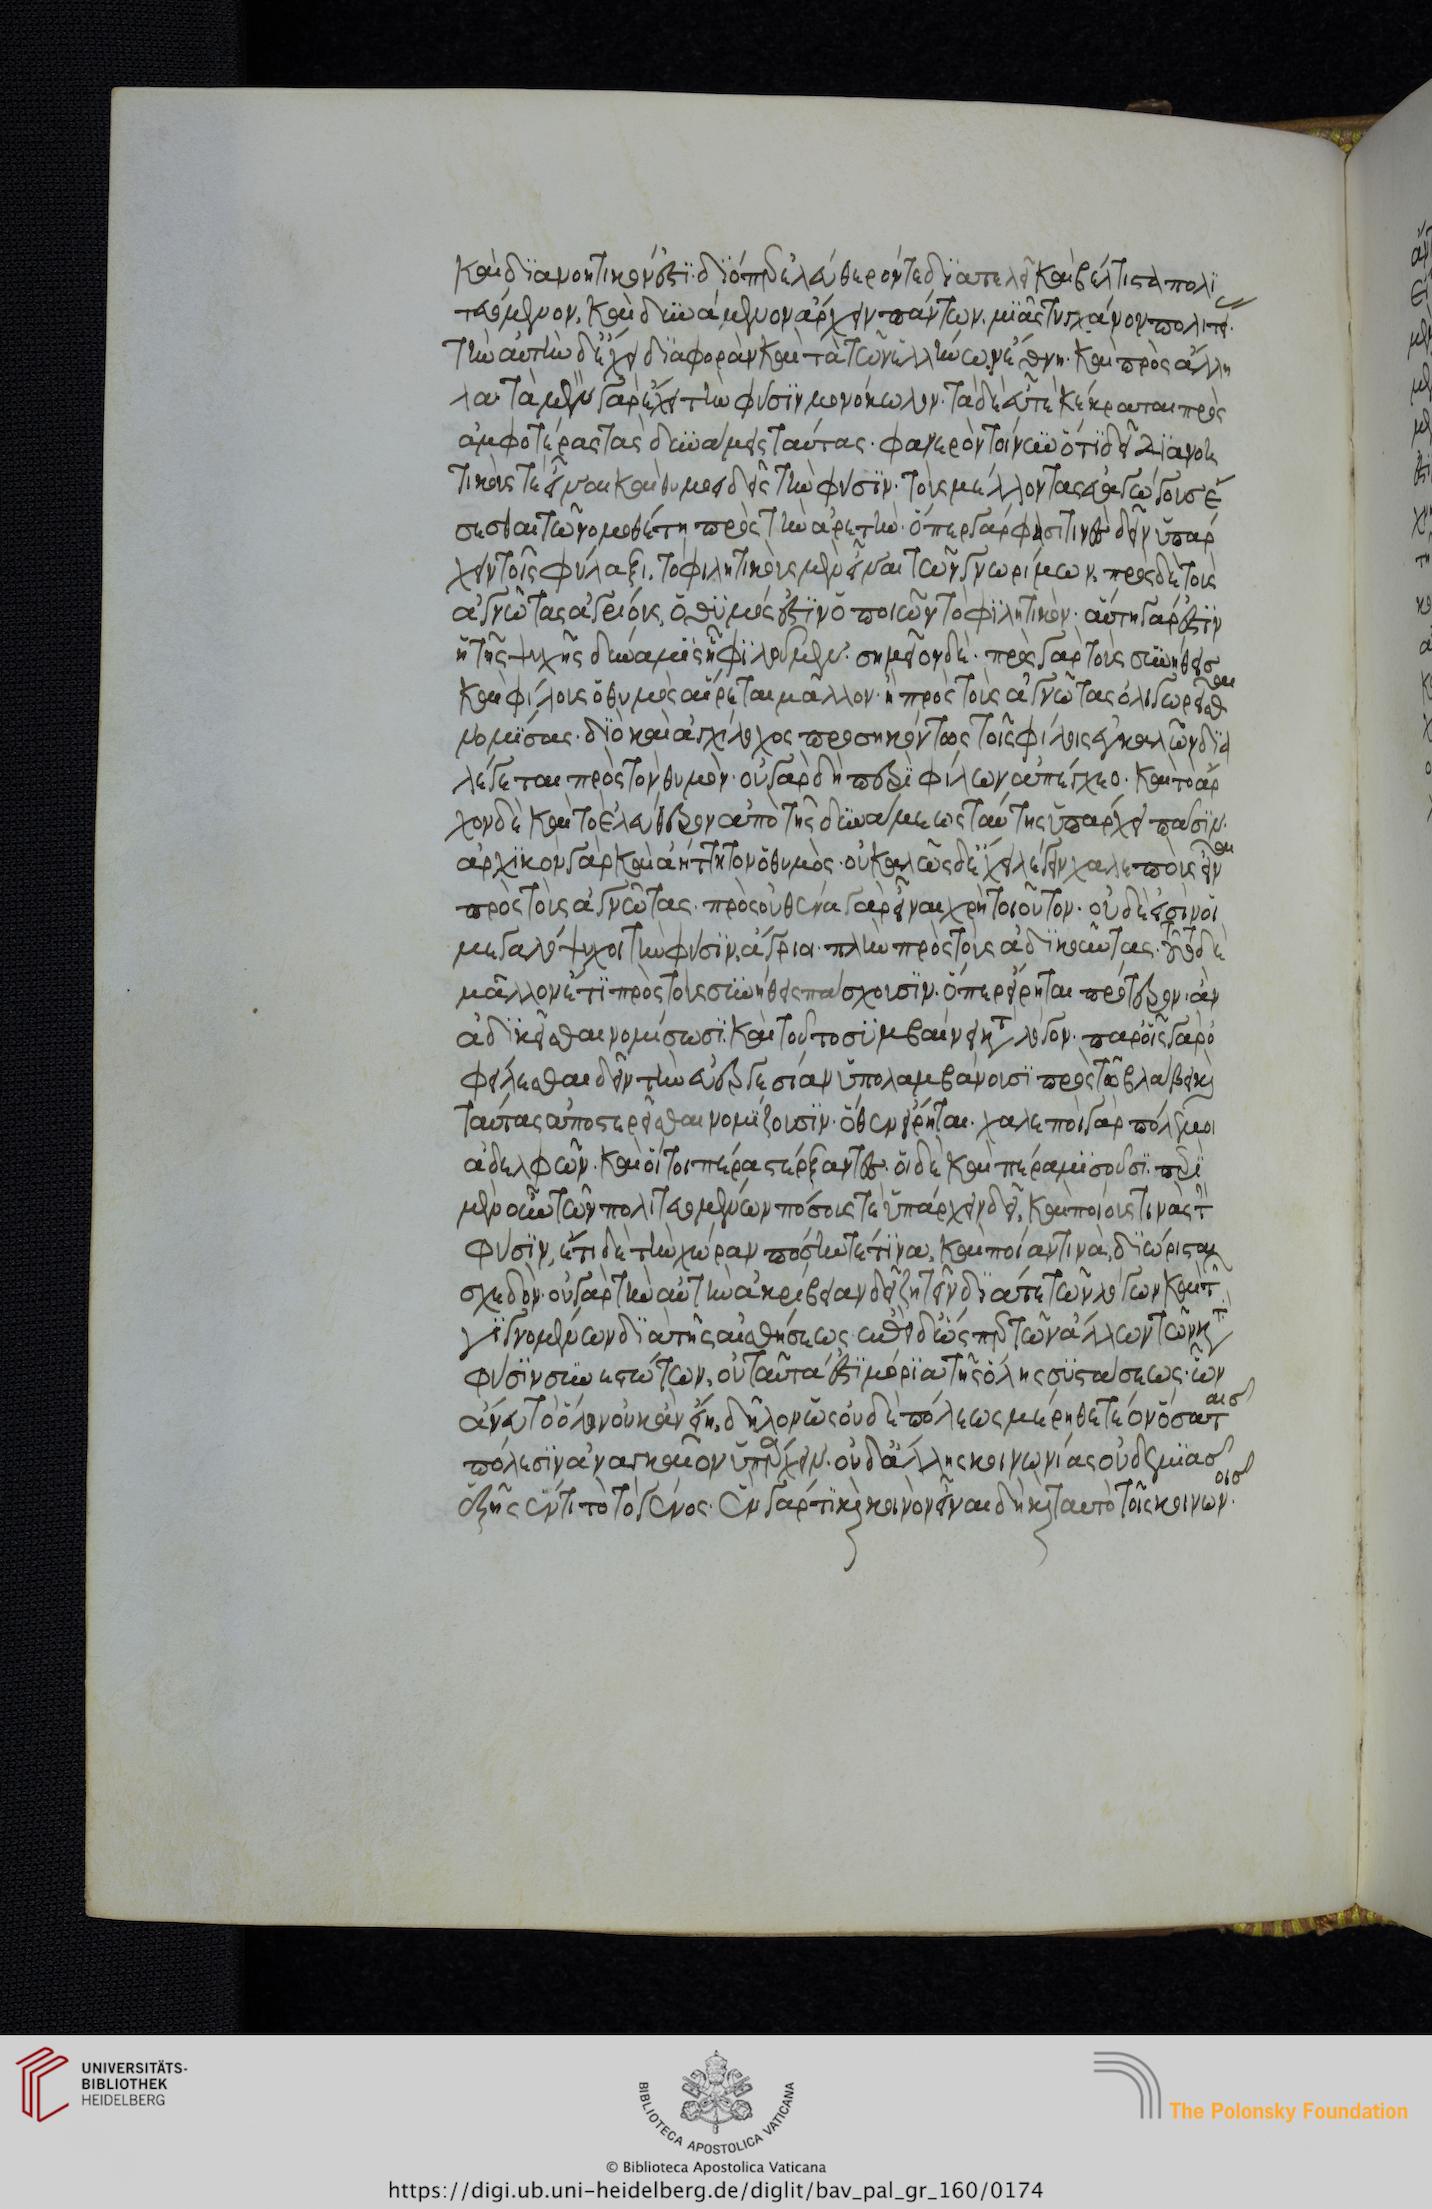 καὶ διανοητικόν ἐστι· διόπερ ἐλεύθερόν τε διατελεῖ καὶ βέλτιστα πολι
τευόμενον, καὶ δυνάμενον ἄρχειν πάντων, μιᾶς τυγχάνον πολιτεί
τὴν αὐτὴν δ' ἔχει διαφορὰν καὶ τὰ τῶν ἑλλήνων ἔθνη καὶ πρὸς ἄλλη
λα· τὰ μὲν γὰρ ἔχει τὴν φύσιν μονόκωλον· τὰ δὲ εὖ τε κέκραται πρὸς
ἀμφοτέρας τὰς δυνάμεις ταύτας· φανερὸν τοίνυν ὅτι δεῖ διανοη
τικούς τε εἶναι καὶ θυμοειδεῖς τὴν φύσιν· τοὺς μέλλοντας εὐαγώγους ἔ
σεσθαι τῶ νομοθέτη πρὸς τὴν ἀρετήν· ὅπερ γάρ φησί τινες δεῖν ὑπάρ
χειν τοῖς φύλαξι, τὸ φιλητικοὺς μὲν εἶναι τῶν γνωρίμων, πρὸς δὲ τοὺς
ἀγνῶτας ἀγρίους, ὁ θυμός ἐστιν ὁ ποιῶν τὸ φιλητικόν· αὕτη γάρ ἐστιν
ἡ τῆς ψυχῆς δύναμις ἧ φιλοῦμεν· σημεῖον δέ· πρὸς γὰρ τοὺς συνήθεις
καὶ φίλους ὁ θυμὸς αἴρεται μᾶλλον· ἢ πρὸς τοὺς ἀγνῶτας ὀλιγωρεῖσθαι
νομίσας· διὸ καὶ ἀρχίλοχος προσηκόντως τοῖς φίλοις ἐγκαλῶν δια
λέγεται πρὸς τὸν θυμόν· οὐ γὰρ δὴ περὶ φίλων ἀπέγχεο· καὶ τὸ ἄρ
χον δὲ καὶ τὸ ἐλεύθερον ἀπὸ τῆς δυνάμεως ταύτης ὑπάρχει πᾶσιν·
ἀρχικὸν γὰρ καὶ ἀήττητον ὁ θυμός· οὐ καλῶς δ' ἔχει λέγειν χαλεποὺς εἶναι
πρὸς τοὺς ἀγνῶτας· πρὸς οὐθένα γὰρ εἶναι χρὴ τοιοῦτον· οὐδέ εἰσιν οἱ
μεγαλόψυχοι τὴν φύσιν, ἄγριοι· πλὴν πρὸς τοὺς ἀδικοῦντας· τοῦτο δὲ
μᾶλλον ἔτι πρὸς τοὺς συνήθεις πάσχουσιν· ὅπερ εἴρηται πρότερον· ἂν
ἀδικεῖσθαι νομίσωσι. καὶ τοῦτο συμβαίνει κατὰ λόγον· παρ' οἷς γὰρ ὀ
φείλεσθαι δεῖν τὴν εὐεργεσίαν ὑπολαμβάνουσι πρὸς τῶ βλάβει καὶ
ταύτης ἀποστερεῖσθαι νομίζουσιν· ὅθεν εἴρηται· χαλεποὶ γὰρ πόλεμοι
ἀδελφῶν· καὶ οἵ τοι πέρα στέρξαντες· οἱ δὲ καὶ πέρα μισοῦσι· περὶ
μὲν οὖν τῶν πολιτευομένων πόσους τε ὑπάρχειν δεῖ, καὶ ποίους τινὰς τὴν
φύσιν, ἔτι δὲ τὴν χώραν πόσην τέ τινα, καὶ ποίαν τινὰ, διώρισται
σχεδόν· οὐ γὰρ τὴν αὐτὴν ἀκρίβειαν δεῖ ζητεῖν διά τε τῶν λόγων καὶ τῶν
γιγνομένων διὰ τῆς αἰσθήσεως· ἐπεὶ δ' ὥσπερ τῶν ἄλλων τῶν κατὰ
φύσιν συνεστώτων, οὐ ταῦτά ἐστι μόρια τῆς ὅλης συστάσεως· ὧν
ἄνευ τὸ ὅλον οὐκ ἂν εἴη, δῆλον ὡς οὐδὲ πόλεως μέρη θετέον ὅσα ταῖς
πόλεσιν ἀναγκαῖον ὑπάρχειν· οὐδ' ἄλλης κοινωνίας οὐδεμιᾶς
ἐξ ἧς ἕν τι τὸ γένος· ἓν γάρ τι καὶ κοινὸν εἶναι δεῖ καὶ ταυτὸ τοῖς κοινωνοῖς
UNIVERSITÄTS-
BIBLIOTHEK
HEIDELBERG
BIBLIOTECA APOSTOLICA VATICANA
The Polonsky Foundation
© Biblioteca Apostolica Vaticana
https://digi.ub.uni-heidelberg.de/diglit/bav_pal_gr_160/0174